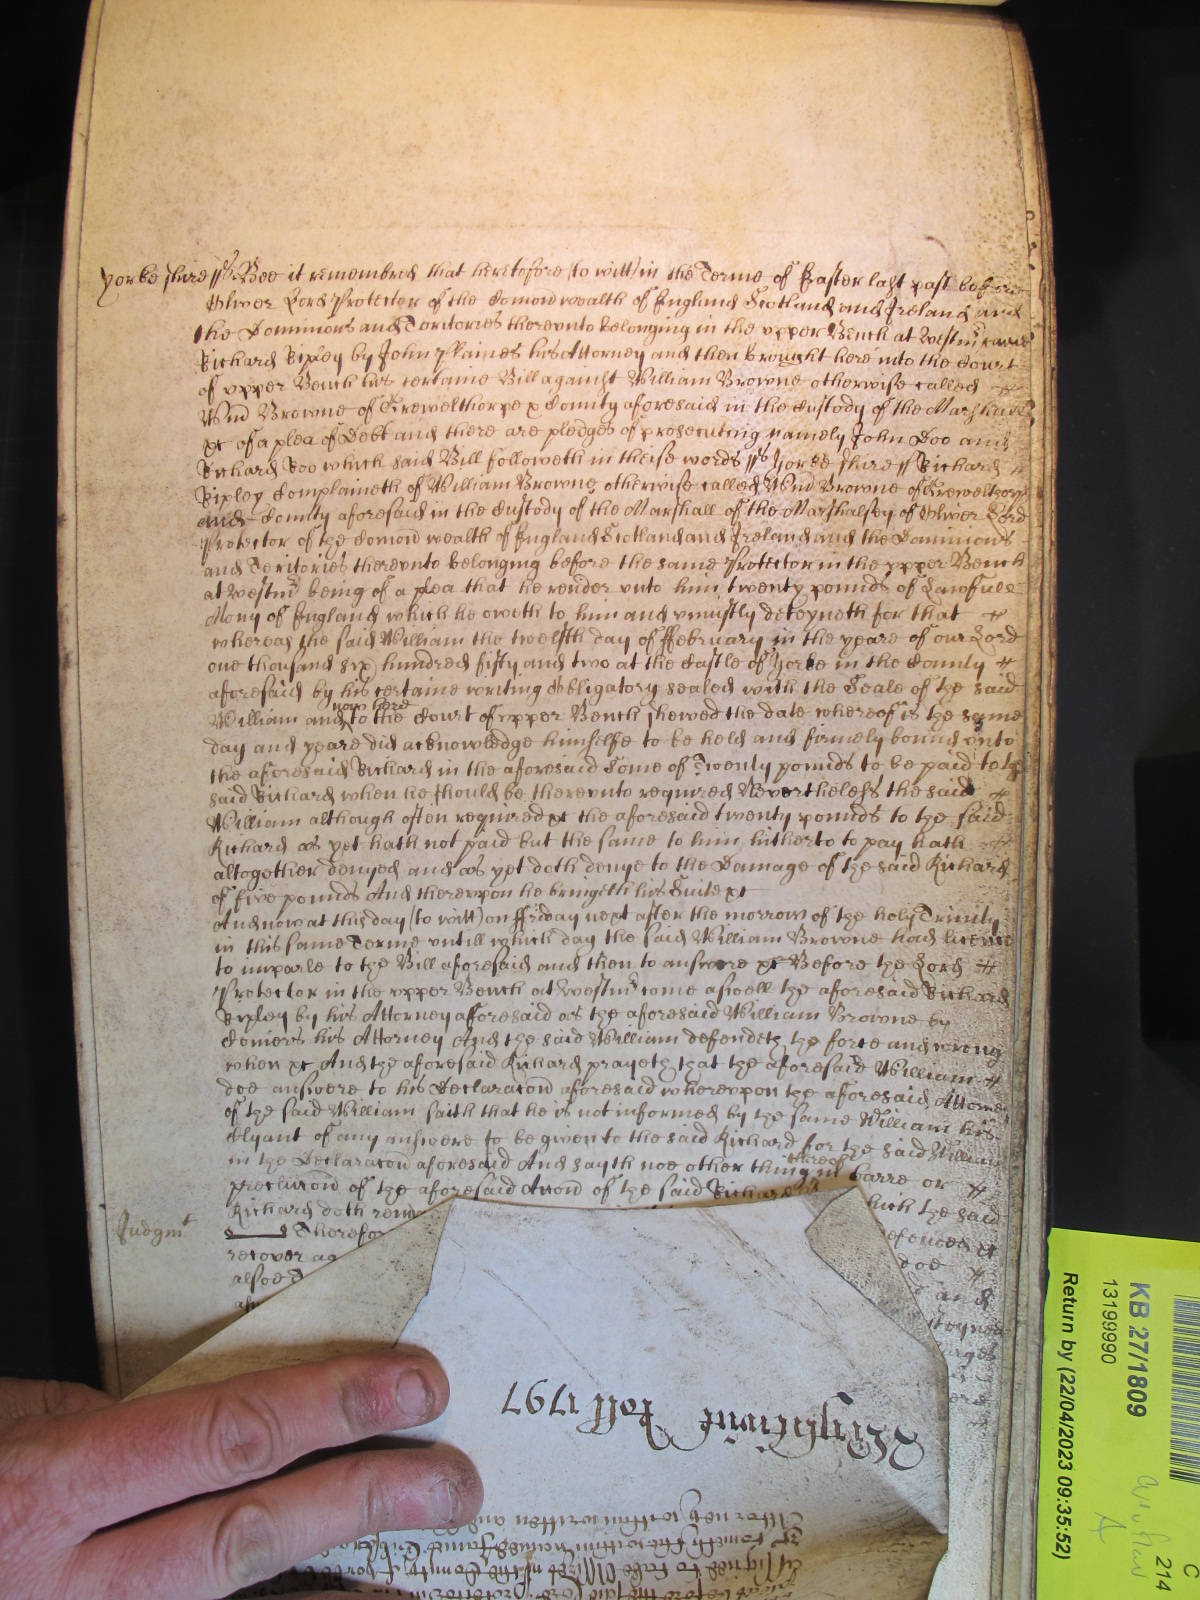 Yorke shire ss Bee it remembred that heretofore (to witt) in the Terme of Easter last past before
Oliver Lord Protector of the Comonwealth of England Scotland and Ireland and
the Dominions and Teritories therevnto belonging in the vpper Bench at Westm came
Richard Ripley by John Plaines his Attorney and then brought here into the Court
of vpper Bench his certaine Bill against William Browne otherwise called
Will Browne of Grewelthorpe County aforesaid in the Custody of the Marshall
&c of a plea of Debt and there are pledges of prosecuting namely John Doo and
Richard Roo which said Bill followeth in theise words ss Yorke shire ss Richard
Ripley Complaineth of William Browne otherwise called Browne of Grewelthorp
and County aforesaid in the Custody of the Marshall of the Marshalsey of Oliver Lord
Protector of the Comonwealth of England Scotland and Ireland and the Dominions
and Teritories therevnto belonging before the same Protector in the vpper Bench
at Westm being of a plea that he render vnto him twenty pounds of Lawfull
Mony of England which he oweth to him and vniustly deteyneth for that
whereas the said William the twelfth day of ffebruary in the yeare of our Lord
one thousand six hundred fifty and two at the Castle of Yorke in the County
aforesaid by his certaine writing Obligatory sealed with the Seale of the said
William and now here to the Court of vpper Bench shewed the date whereof is the same
day and yeare did acknowledge himselfe to be held and firmely bound vnto
the aforesaid Richard in the aforesaid Some of Twenty pounds to be paid to the
said Richard when he should be therevnto required Neverthelesse the said
William although often required &c the aforesaid twenty pounds to the said
Richard as yet hath not paid but the same to him hitherto to pay hath
altogether denyed and as yet doth denye to the Damage of the said Richard
of five pounds And therevpon he bringeth his Suite &c
And now at this day (to witt) on ffriday next after the morrow of the holy Trinity
in this same Terme vntill which day the said William Browne had licence
to imparle to the Bill aforesaid and then to answere &c Before the Lord
Protector in the vpper Bench at Westm come aswell the aforesaid Richard
Ripley by his Attorney aforesaid as the aforesaid William Browne by
Comers his Attorney And the said William defendeth the force and wrong
when &c And the aforesaid Richard prayeth that the aforesaid William
doe answere to his Declaracon aforesaid wherevpon the aforesaid Attorney
of the said William saith that he is not informed by the same William his
Clyant of any answere to be given to the said Richard for the said William
in the Declaracon aforesaid And sayth noe other thing thereof in barre or
preclucon of the aforesaid Accon of the said Richard
Richard doth hich the said
Judgmt
Therefor
recover ag
alsoe
efences
doe
and
KB 27/1809
13199990
Return by (22/04/2023 09:35:52)
C
214
A
roll 1797
Attorney within written and